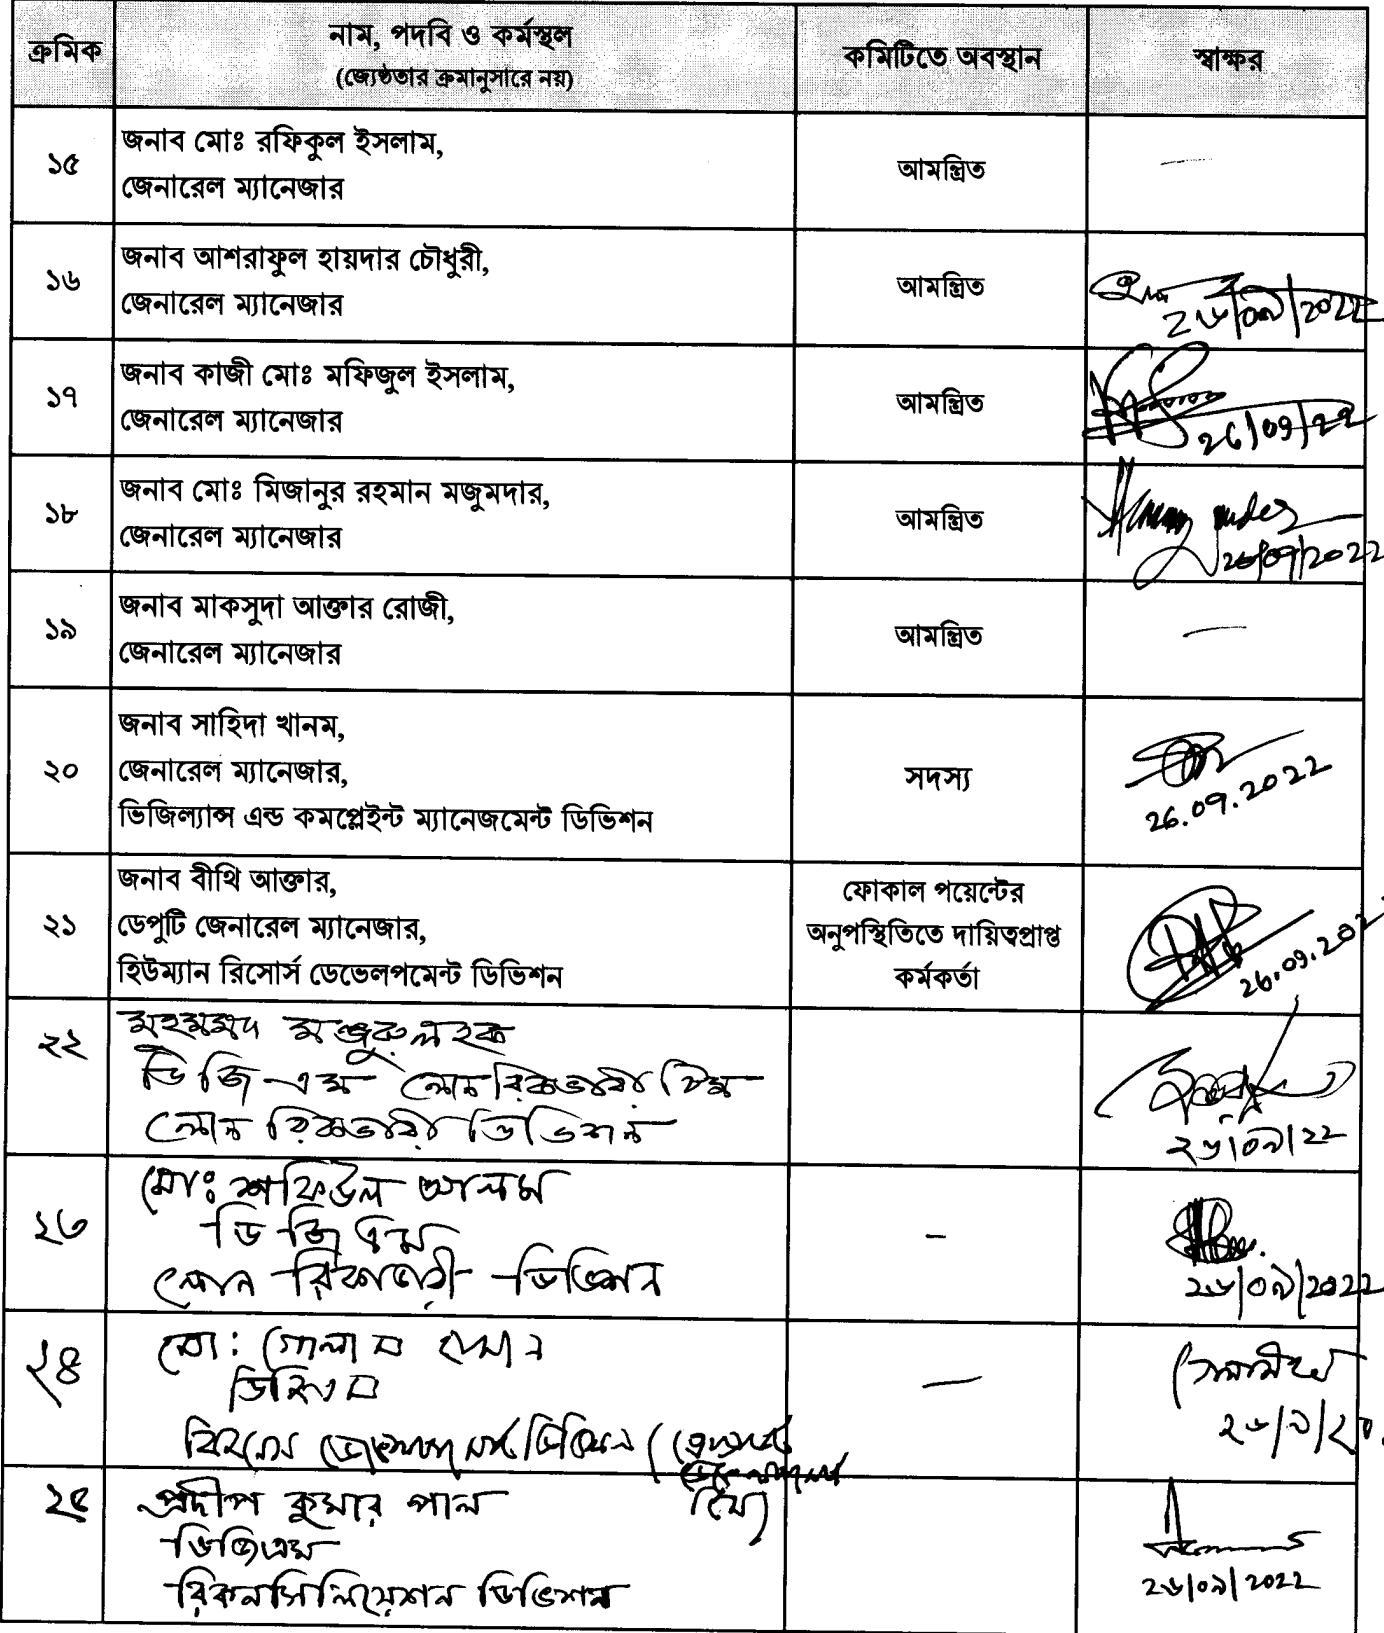 ক্রমিক
নাম, পদবি ও কর্মস্থল
(জ্যেষ্ঠতার ক্রমানুসারে নয়)
কমিটিতে অবস্থান
স্বাক্ষর
১৫
জনাব মোঃ রফিকুল ইসলাম,
জেনারেল ম্যানেজার
আমন্ত্রিত
—
১৬
জনাব আশরাফুল হায়দার চৌধুরী,
জেনারেল ম্যানেজার
আমন্ত্রিত
২৬/০৯/২০২২
১৭
জনাব কাজী মোঃ মফিজুল ইসলাম,
জেনারেল ম্যানেজার
আমন্ত্রিত
26/09/22
১৮
জনাব মোঃ মিজানুর রহমান মজুমদার,
জেনারেল ম্যানেজার
আমন্ত্রিত
26/09/2022
১৯
জনাব মাকসুদা আক্তার রোজী,
জেনারেল ম্যানেজার
আমন্ত্রিত
—
২০
জনাব সাহিদা খানম,
জেনারেল ম্যানেজার,
ভিজিল্যান্স এন্ড কমপ্লেইন্ট ম্যানেজমেন্ট ডিভিশন
সদস্য
26.09.2022
২১
জনাব বীথি আক্তার,
ডেপুটি জেনারেল ম্যানেজার,
হিউম্যান রিসোর্স ডেভেলপমেন্ট ডিভিশন
ফোকাল পয়েন্টের
অনুপস্থিতিতে দায়িত্বপ্রাপ্ত
কর্মকর্তা
26.09.202
২২
মুহম্মদ মঞ্জুরুল হক
ডিজিএম লোন রিকভারী
লোন রিকভারী ডিভিশন
২৬/০৯/২২
২৩
মোঃ শফিউল আলম
ডি জি এম
লোন রিকভারী ডিভিশন
-
২৬/০৯/২০২২
২৪
মো: গোলাম
ডিজিএম
ডিভিশন
—
২৬/৯/২০
২৫
প্রদীপ কুমার পাল
ডিজিএম
রিকনসিলিয়েশন ডিভিশন
২৬/০৯/২০২২